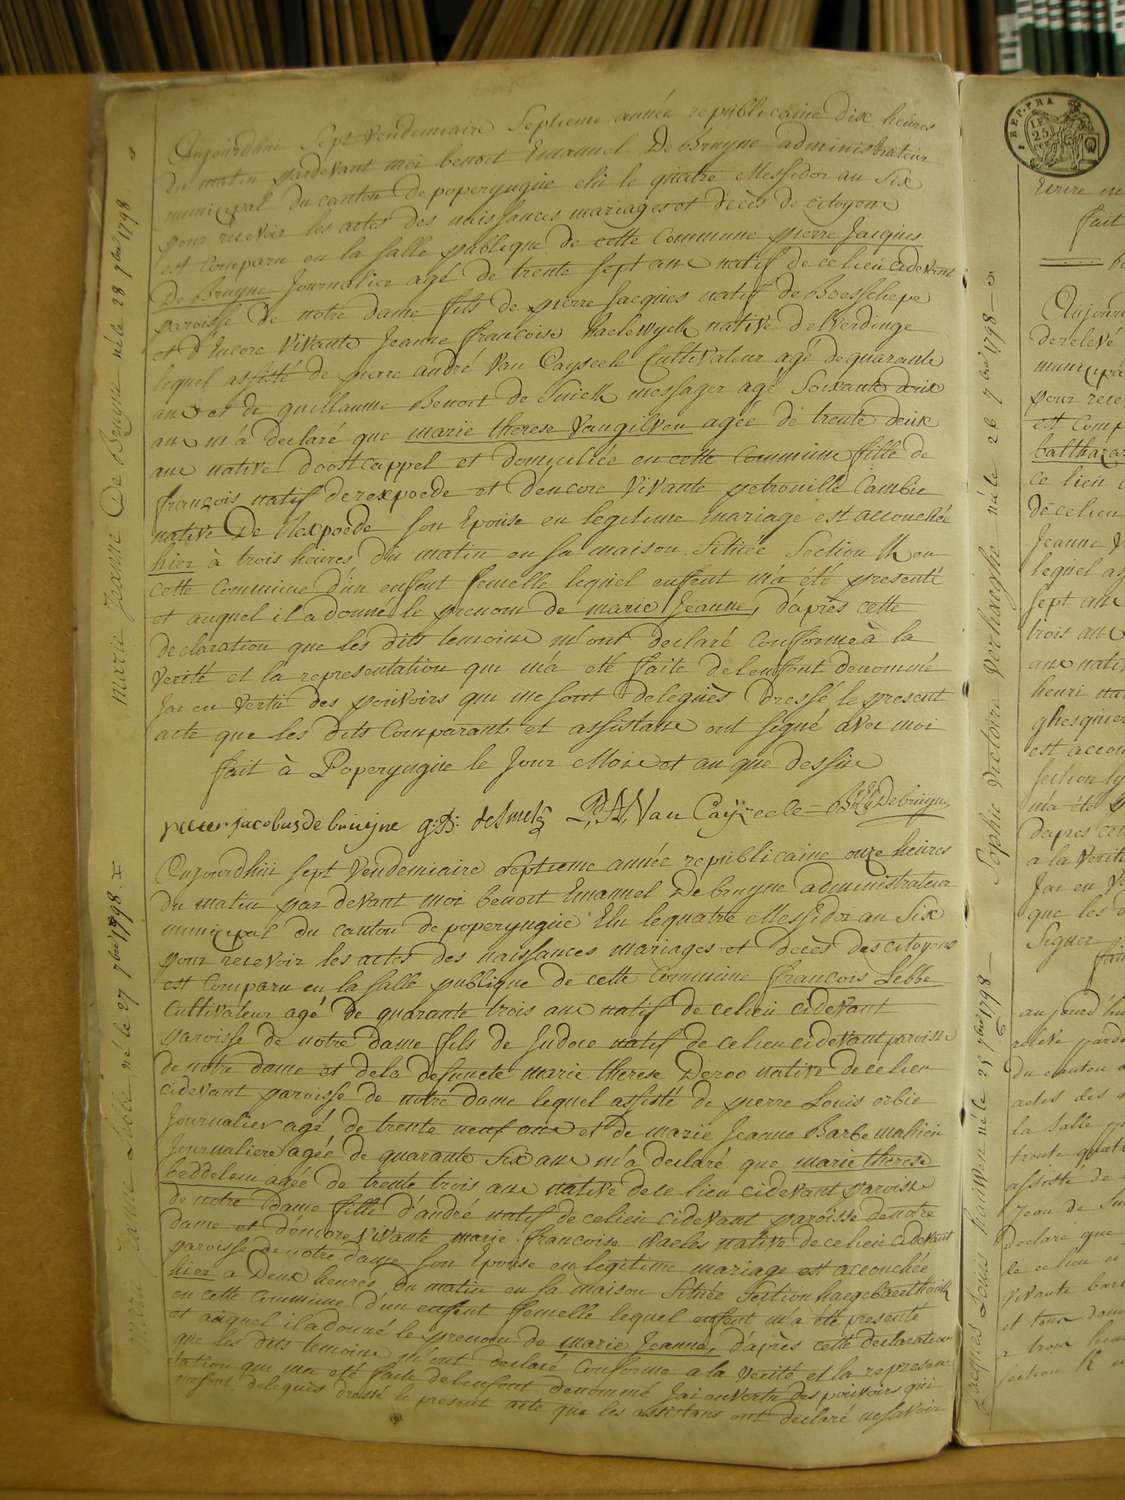 Aujourdhui Sept Vendemiaire Septieme année republicaine dix heures
du matin pardevant moi benoit Emanuel DeBruyne administrateur
municipal du canton de poperyngue elu le quatre Messidor an Six
pour recevoir les actes des naissances mariages et decès de citoyens
est comparu en la salle publique de cette Commune pierre Jacques
De Bruyne Journalier agé de trente sept ans natif de ce lieu cidevant
paroisse de notre dame fils de pierre Jacques natif de Boesschepe
et d'Encore Vivante Jeanne francoise Haelewyck native d'elverdinge
lequel assisté de pierre andré Van Cayseele Cultivateur agé de quarante
ans et de guillaume Benoit de Smick messager agé Soixante deux
ans m'a declaré que marie therese Vangilven agée de trente deux
ans native d'oostcappel et domiciliée en cette Commune fille de
françois natif de rexpoede et d'encore Vivante petronille Cambie
native De Rexpoede son Epouse en legitime mariage est accouchée
hier à trois heures du matin en sa maison Située Section K en
cette Commune d'un enfant femelle lequel enfant m'a été presenté
et auquel il a donné le prenom de marie Jeanne, d'après cette
declaration que les dits temoins m'ont declaré Conforme à la
Verité et la representation qui m'a eté faite de l'enfant denommé
Jai en Vertu des pouvoirs qui me sont delegués Dressé le present
acte que les dits Comparant et assistans ont signé avec moi
fait à Poperyngue le Jour Mois et an que dessus
peeter jacobus de bruijne g:B: desmit P,A,Van Caÿzeele B:E:Debruyne
Aujourdhui sept Vendemiaire Septieme année republicaine onze heures
du matin par devant moi benoit Emanuel Debruyne administrateur
municipal du canton de poperyngue Elu le quatre Messidor an Six
pour recevoir les actes des naissances mariages et decès des citoyens
est comparu en la salle publique de cette Commune françois Lebbe
Cultivateur agé de quarante trois ans natif de ce lieu cidevant
paroisse de notre dame fils de Judoce natif de ce lieu cidevant paroisse
de notre dame et de la defuncte marie therese Deroo native de ce lieu
cidevant paroisse de notre dame lequel assisté de pierre Louis orbie
Journalier agé de trente neuf ans et de marie Jeanne Barbe mahieu
Journaliere agée de quarante Six ans m'a declaré que marie therese
beddeleem agée de trente trois ans native de ce lieu cidevant paroisse
de notre Dame fille d'andré natif de ce lieu cidevant paroisse de notre
dame et d'encore Vivante marie francoise Waeles native de ce lieu cidevant
paroisse de notre dame son Epouse en legitime mariage est accouchée
hier a Deux heures du matin en sa maison Située Section
en cette Commune d'un enfant femelle lequel enfant m'a été presenté
et auquel il a donné le prenom de marie Jeanne, d'après cette declaration
que les dits temoins m'ont declaré Conforme a la Verité et la represen
tation qui m'a eté faite de l'enfant denommé Jai en vertu des pouvoirs qui
me sont delegués dressé le present acte que les assistans ont declaré ne savoir
marie Jeanne De Bruyne né le 28 7bre 1798
marie Janne Lebbe né le 27 7bre 1798
Sophie Victoire Verhaeghe né le 26 7bre 1798
Jacques Louis né le 25 7bre 1798
REP. FRA
25
Ecrire
fait
Aujour
de relevé
municipa
pour rece
est comp
balthazar
ce lieu
de ce lieu
Jeanne
lequel as
sept ans
trois ans
ans nati
henri na
ghesquier
est accou
section
m'a été p
d'apres cet
a la Verité
Jai en V
que les d
Signer
aujourd'hui
relevé parde
du canton
actes des
la salle p
trente quatr
assisté de
Jean de
Declare que
de ce lieu
Vivante bar
et tous dom
a trois heur
section K